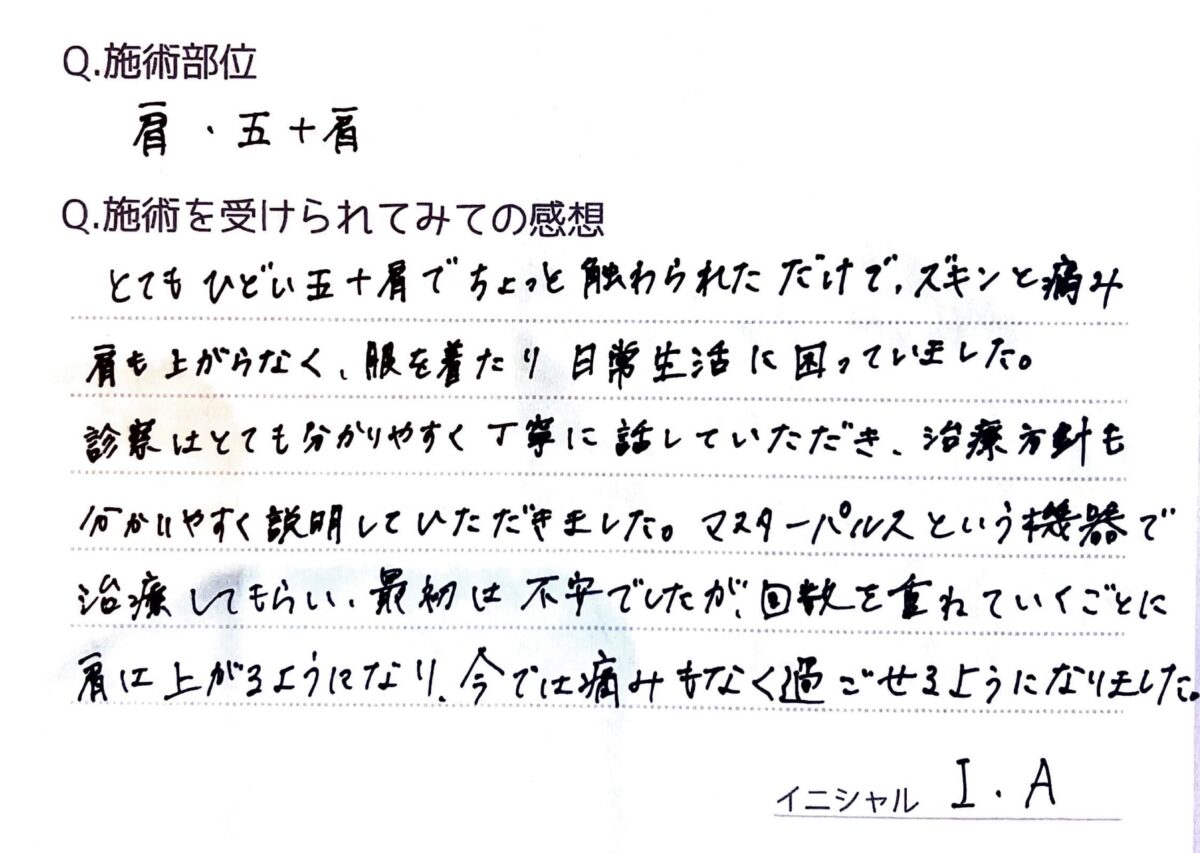 Q.施術部位
肩・五十肩
Q.施術を受けられてみての感想
とてもひどい五十肩でちょっと触わられただけで、ズキンと痛み
肩も上がらなく、服を着たり日常生活に困っていました。
診察はとても分かりやすく丁寧に話していただき、治療方針も
分かりやすく説明していただきました。マスターパルスという機器で
治療してもらい、最初は不安でしたが、回数を重ねていくごとに
肩は上がるようになり、今では痛みもなく過ごせるようになりました。
イニシャル I.A